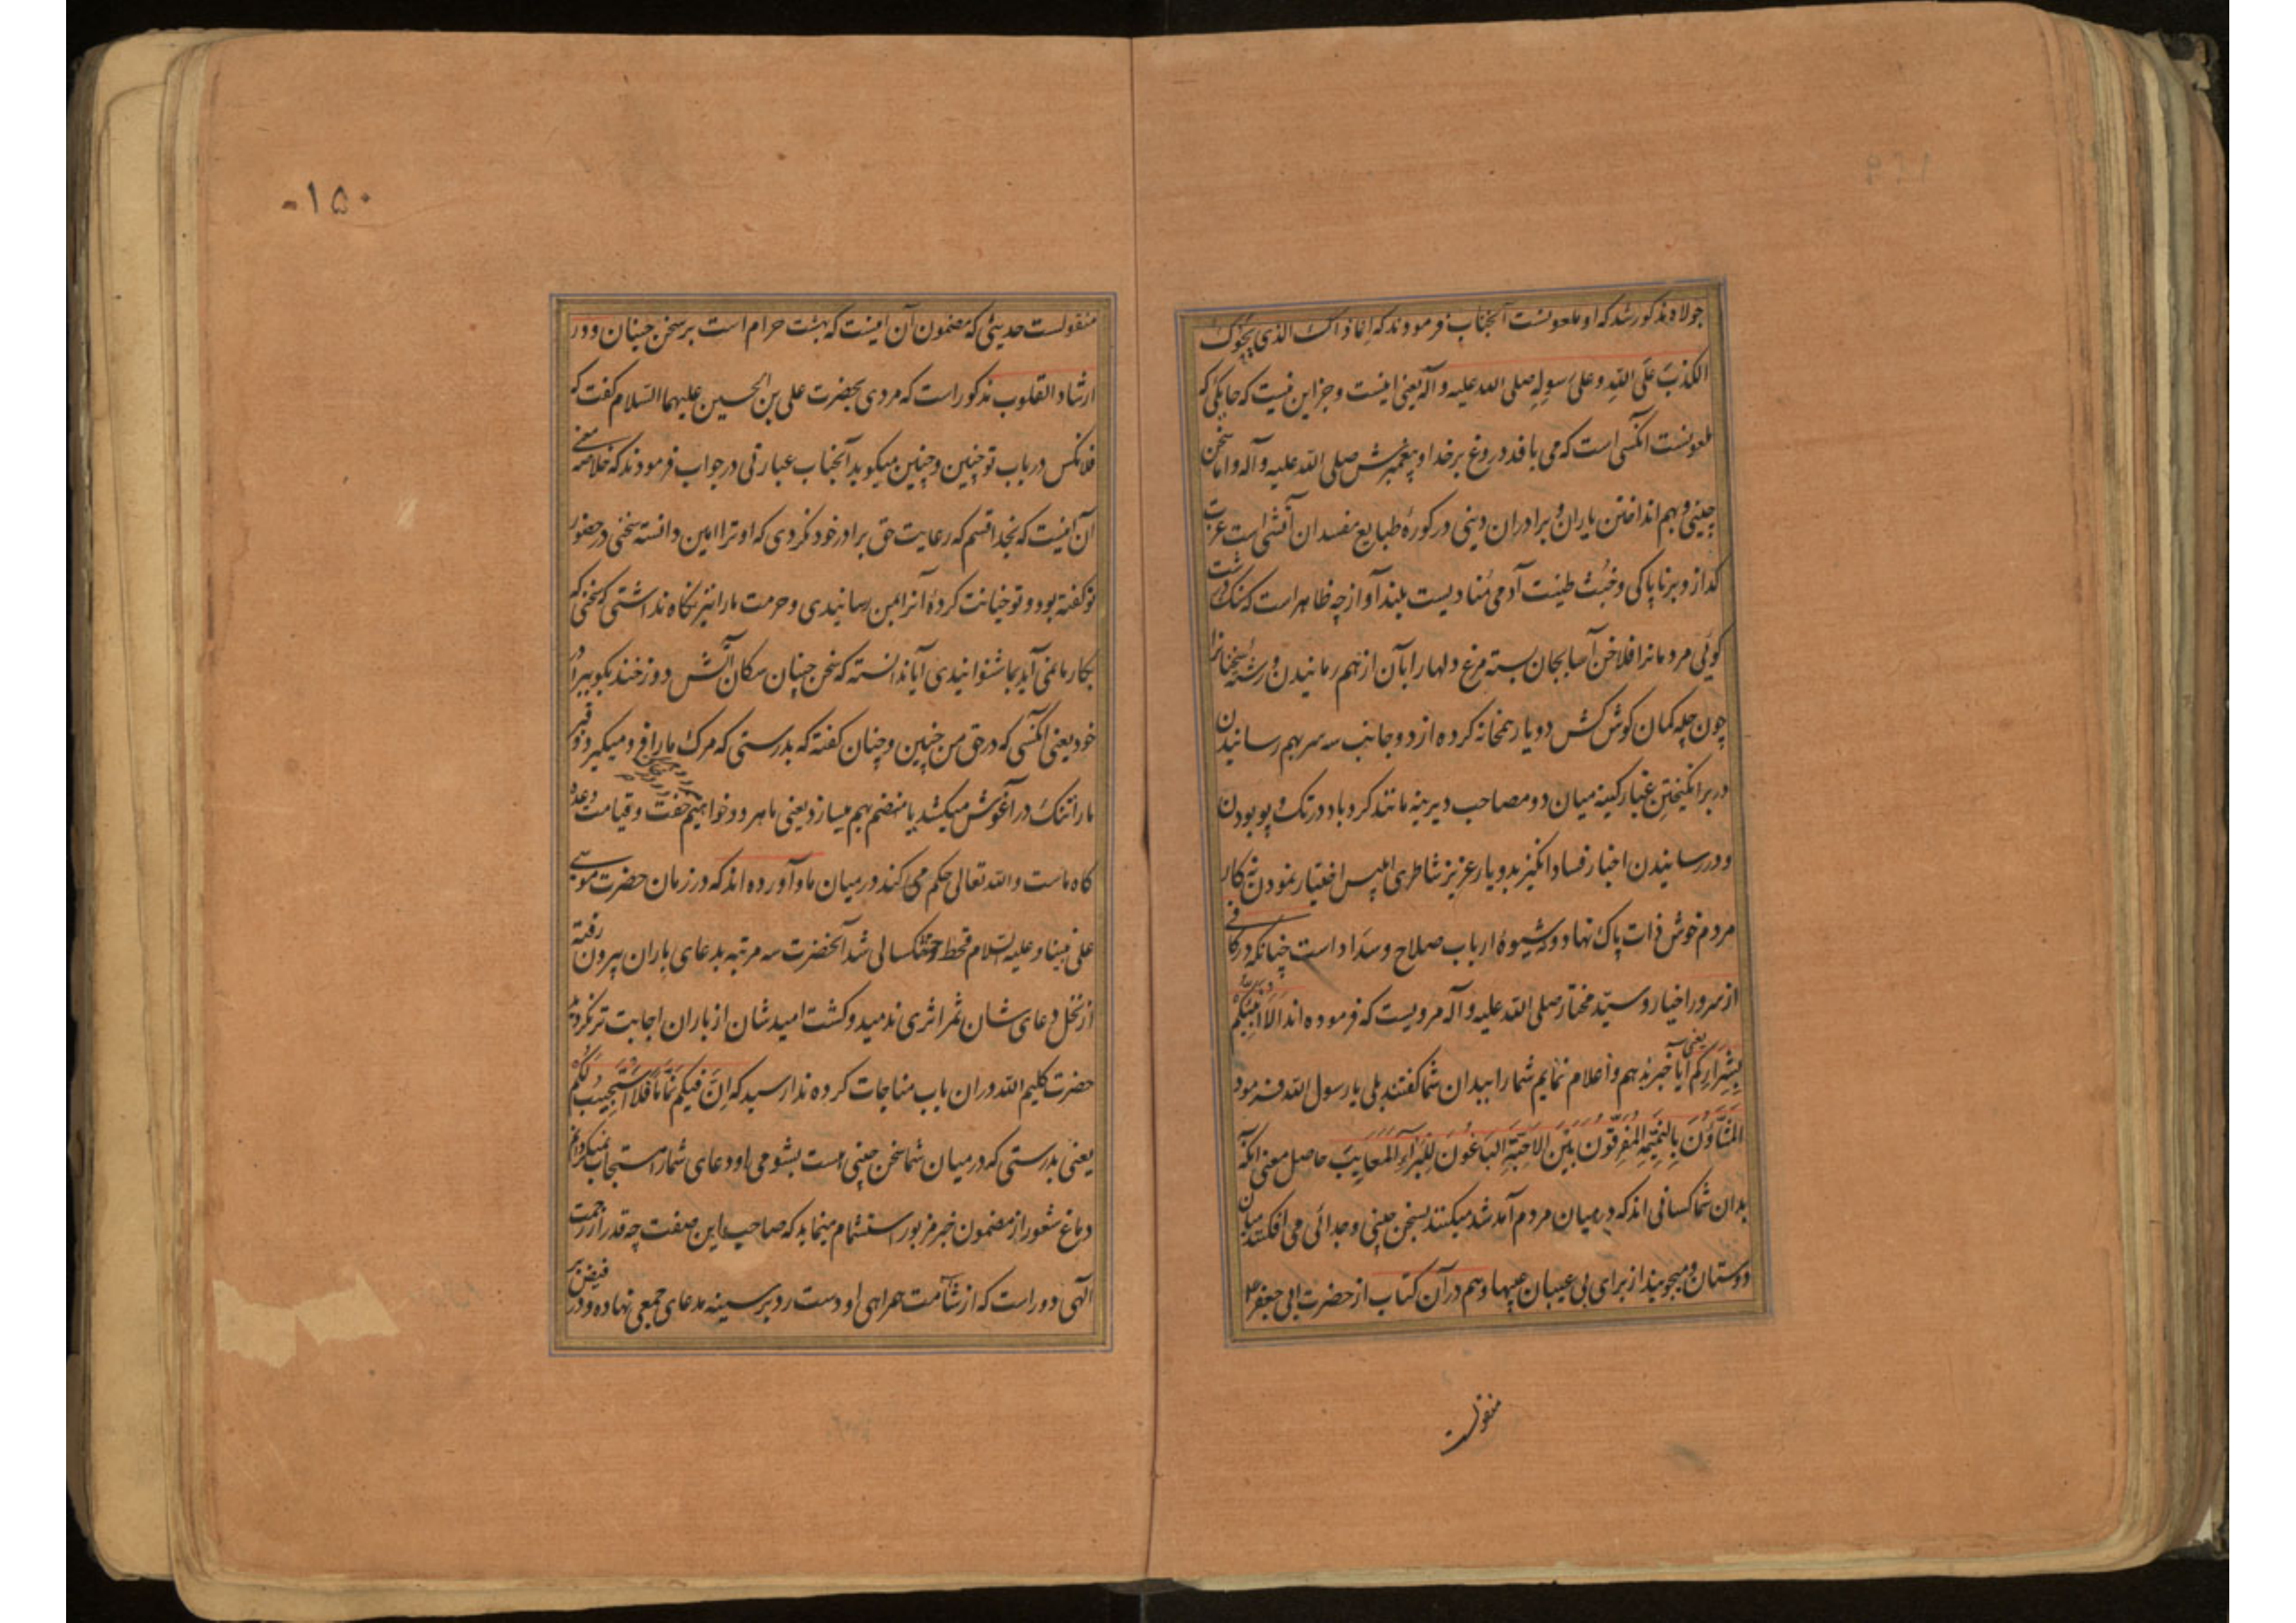 جولاه مذکور شد که او ملعونست آنجناب فرمودند که انما ذاک الذی یحوک
الکذب علی الله و علی رسوله صلی الله علیه و آله یعنی اینست و جز این نیست که حایکی که
ملعونست آنکسی است که می بافد دروغ بر خدا و پیغمبرش صلی الله علیه و آله و اما سخن
چینی و بهم انداختن یاران و برادران دینی در کورهٔ طبایع مفسدان آتشی است غربت
گداز و بر ناپاکی و خبث طینت آدمی منادیست بلند آواز چه ظاهر است که سنک درشت
کوئی مردمانرا فلاخن آسا بجان بسته مرغ دلها را بآن از هم رمانیدن و رشته سخنانرا
چون چله کمان گوش کش دو یار همخانه کرده از دو جانب سه سر بهم رسانیدن
و در برانگیختن غبار کینه میان دو مصاحب دیرینه مانند کردباد در تک و پو بودن
و در رسانیدن اخبار فساد انگیز بدو یار عزیز شاطری ابلیس اختیار نمودن نه کار
مردم خوش ذات پاک نهاد و نه شیوهٔ ارباب صلاح و سداد است چنانکه در کافی
از سرور اخیار و سید مختار صلی الله علیه و آله مرویست که فرموده اند الا انبئکم
بشرارکم یعنی آیا خبر ندهم و اعلام ننمایم شما را ببدان شما گفتند بلی یا رسول الله فرمود
المشاؤن بالنمیمة المفرقون بین الاحبة الباغون للبرآء المعایب حاصل معنی آنکه
بدان شما کسانی اند که در میان مردم آمد شد میکنند بسخن چینی و جدائی می افکنند میان
دوستان و میجویند از برای بی عیبان عیبها و هم در آن کتاب از حضرت ابی جعفر ع
منقولست
۱۵۰
منقولست حدیثی که مضمون آن اینست که بهشت حرام است بر سخن چینان و در
ارشاد القلوب مذکور است که مردی بحضرت علی بن الحسین علیهما السلام گفت که
فلانکس در باب تو چنین و چنین میگوید آنجناب عبارتی در جواب فرمودند که خلاصه معنی
آن اینست که بخدا قسم که رعایت حق برادر خود نکردی که او ترا امین دانسته سخنی در حضور
تو گفته بود و تو خیانت کرده آنرا بمن رسانیدی و حرمت ما را نیز نگاه نداشتی که سخنی که
بکار ما نمی آید بما شنوانیدی آیا ندانسته که سخن چینان سگان آتش دوزخند بگو ببرادر
خود یعنی آنکسی که در حق من چنین و چنان گفته که بدرستی که مرک ما را فرو میگیرد و قبر
ما را تنک در آغوش میکشد یا منضم بهم میسازد یعنی ما هر دو خواهیم خفت و قیامت وعده
کاه ماست و الله تعالی حکم می کند در میان ما و آورده اند که در زمان حضرت موسی
علی نبینا و علیه السلام قحط و خشکسالی شد آنحضرت سه مرتبه بدعای باران بیرون رفته
از نخل دعای شان ثمر اثری ندمید و کشت امیدشان از باران اجابت تر نگردید
حضرت کلیم الله در ان باب مناجات کرده ندا رسید که ان فیکم نماما فلا استجیب لکم
یعنی بدرستی که در میان شما سخن چینی است بشومی او دعای شما را مستجاب نمیگردانم
دماغ شعور از مضمون خبر مزبور استشمام مینماید که صاحب این صفت چه قدر از رحمت
الهی دور است که از شآمت همراهی او دست رد بر سینه مدعای جمعی نهاده و در فیض بر